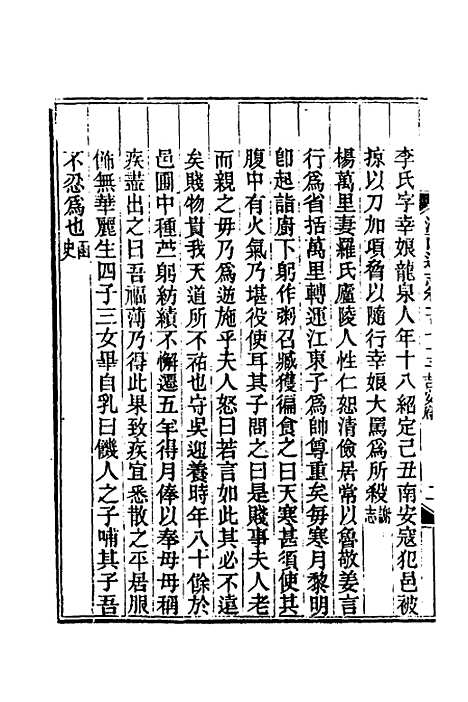 李氏字幸娘龍泉人年十八紹定己丑南安寇犯邑被
掠以刀加項脅以隨行幸娘大罵爲所殺謝志
楊萬里妻羅氏廬陵人性仁恕清儉居常以魯敬姜言
行爲省括萬里轉運江東子爲帥尊重矣每寒月黎明
卽起詣廚下躬作粥召臧獲徧食之曰天寒甚須使其
腹中有火氣乃堪役使耳其子問之曰是賤事夫人老
而親之毋乃爲逆施乎夫人怒曰若言如此其必不遠
矣賤物貴我天道所不祐也守吳迎養時年八十餘於
邑圃中種苧躬紡績不懈遷五年得月俸以奉母母稱
疾盡出之曰吾福薄乃得此果致疾宜悉散之平居服
飾無華麗生四子三女畢自乳曰饑人之子哺其子吾
不忍爲也函史